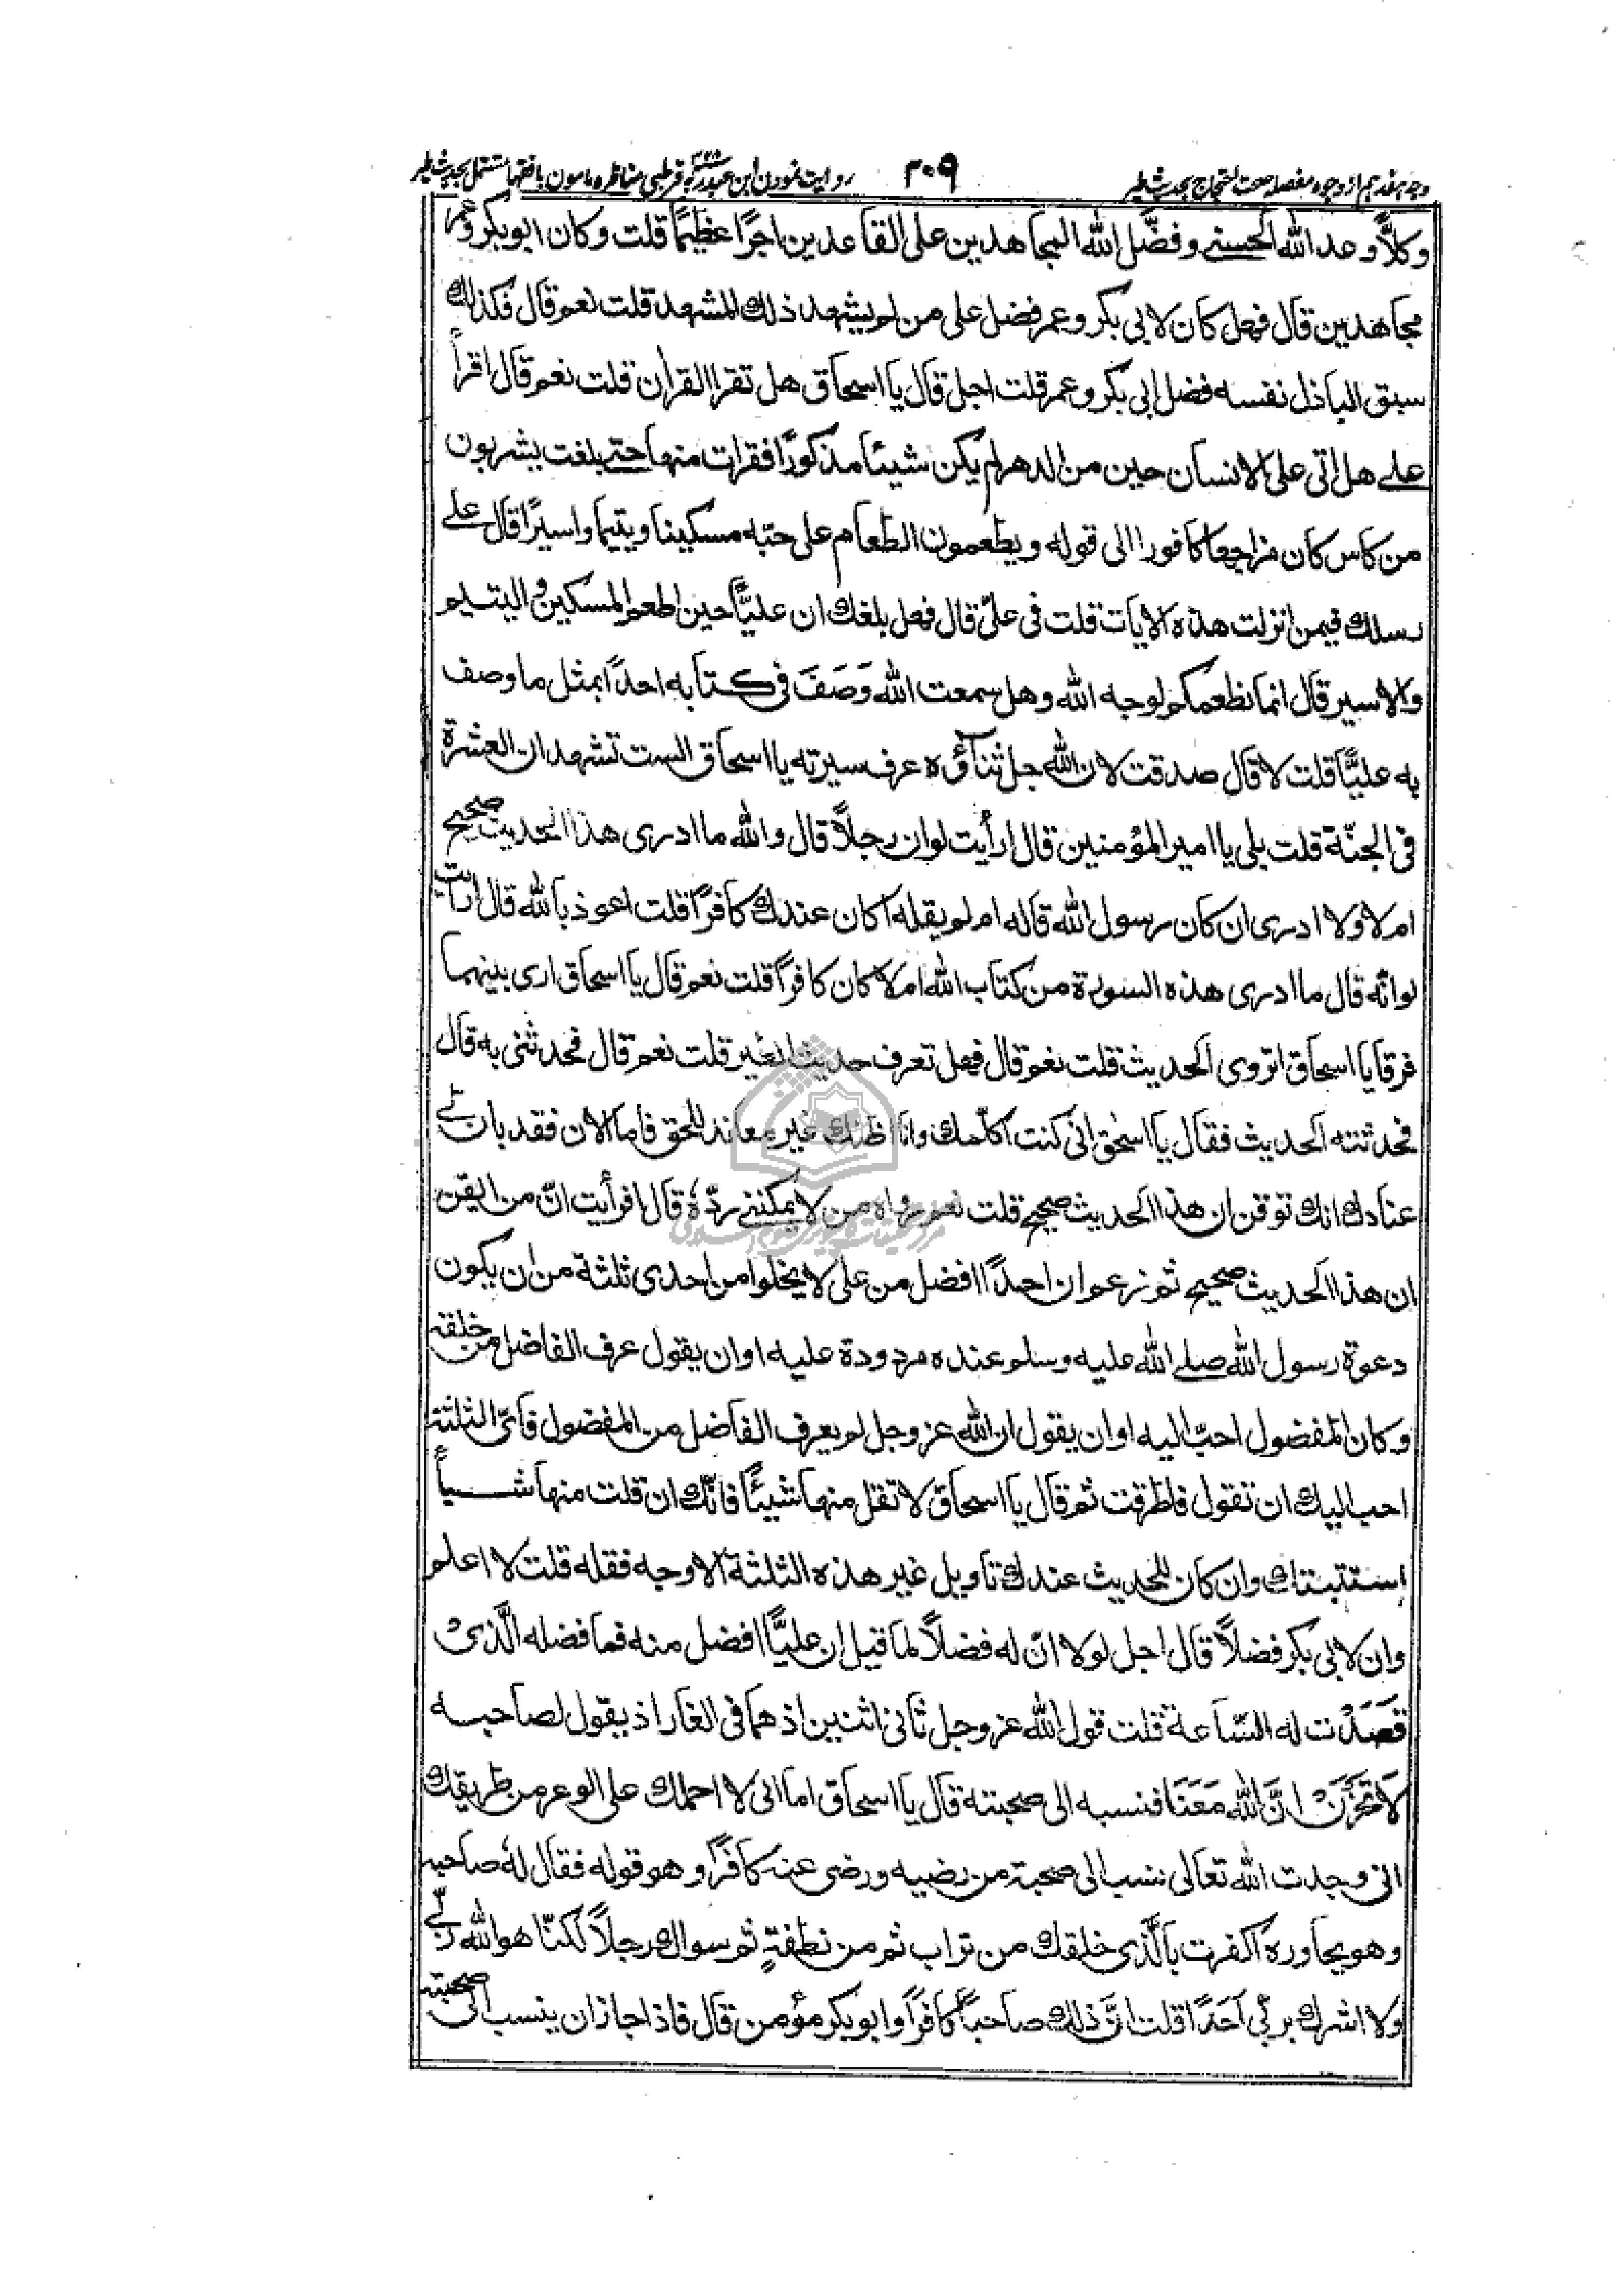 وجه هفدهم از وجوه مفصله صحت احتجاج بحديث طير ٣٠٩ روايت نمودن ابن عبد ربه قرطبى مناظره مامون با فقها مشتمل بحديث طير
وكلاًّ وعد الله الحسنى وفضَّل الله المجاهدين على القاعدين اجرًا عظيمًا قلت وكان ابو بكر وعمر
مجاهدين قال فهل كان لابى بكر وعمر فضل على من لم يشهد ذلك المشهد قلت نعم قال فكذلك
سبق الباذل نفسه فضل ابى بكر وعمر قلت اجل قال يا اسحاق هل تقرا القران قلت نعم قال اقرأ
على هل اتى على الانسان حين من الدهر لم يكن شيئا مذكورًا فقرات منها حتى بلغت يشربون
من كاس كان مزاجها كافورا الى قوله ويطعمون الطعام على حبّه مسكينا ويتيما واسيرًا قال على
رسلك فيمن انزلت هذه الايات قلت فى علىّ قال فهل بلغك ان عليًّا حين اطعم المسكين واليتيم
والاسير قال انما نطعمكم لوجه الله وهل سمعت الله وَصَفَ فى كتابه احدًا بمثل ما وصف
به عليًّا قلت لا قال صدقت لان الله جل ثناؤه عرف سيرته يا اسحاق الست تشهد ان العشرة
فى الجنّة قلت بلى يا امير المؤمنين قال ارأيت لو ان رجلاً قال والله ما ادرى هذا الحديث صحيح
ام لا ولا ادرى ان كان رسول الله قاله ام لم يقله اكان عندك كافرًا قلت اعوذ بالله قال ارايت
لو انّه قال ما ادرى هذه السورة من كتاب الله ام لا كان كافرًا قلت نعم قال يا اسحاق ارى بينهما
فرقا يا اسحاق اتروى الحديث قلت نعم قال فهل تعرف حديث الطير قلت نعم قال فحدثنى به قال
فحدثته الحديث فقال يا اسحٰق انى كنت اكلّمك وانا اظنك غير معاند للحق فاما الان فقد بان لى
عنادك انك توقن ان هذا الحديث صحيح قلت نعم رواه من لا يمكننى ردّهٗ قال افرأيت انّ من ايقن
ان هذا الحديث صحيح ثم زعم ان احدًا افضل من على لا يخلوا من احدى ثلثة من ان يكون
دعوة رسول الله صلى الله عليه وسلم عنده مردودة عليه او ان يقول عرف الفاضل من خلقه
وكان المفضول احبّ اليه او ان يقول ان الله عز وجل لم يعرف الفاضل من المفضول فاىّ الثلثة
احب اليك ان تقول فاطرقت ثم قال يا اسحاق لا تقل منها شيئًا فانّك ان قلت منها شيأً
استتبتك وان كان للحديث عندك تاويل غير هذه الثلثة الاوجه فقله قلت لا اعلم
وان لابى بكر فضلاً قال اجل لولا انّ له فضلاً لما قيل ان عليًّا افضل منه فما فضله الّذىْ
قَصَدْت له السّاعة قلت قول الله عز وجل ثانى اثنين اذ هما فى الغار اذ يقول لصاحبه
لَا تَحْزَنْ انَّ الله مَعَنَا فنسبه الى صحبته قال يا اسحاق اما انى لا احملك على الوعر من طريقك
انى وجدت الله تعالى نسب الى صحبة من رضيه ورضى عنه كافرًا وهو قوله فقال لهٗ صاحبه
وهو يحاوره اكفرت بالّذى خلقك من تراب ثم من نطفةٍ ثم سواك رجلاً لكنّا هو الله ربّى
ولا اشرك بربّى اَحَدًا قلت انّ ذلك صاحبًا كافرًا وابو بكر مؤمن قال فاذا جاز ان ينسب الى صحبته